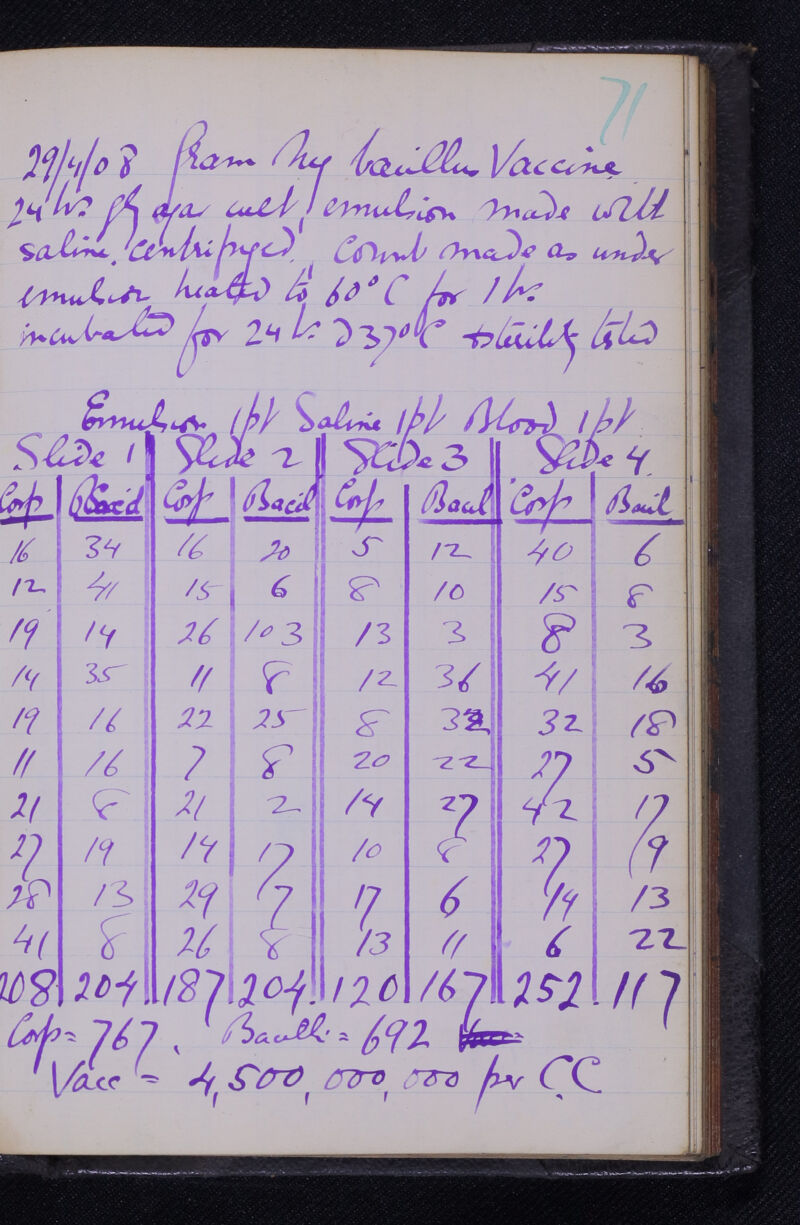 71
29/4/08 Gram Neg bacillus Vaccine
24 hrs gl agar cult, emulsion made with
saline, centrifuged, Count made as under
emulsion heated to 60°C for 1 hr.
incubated for 24 hrs @ 37°C + sterility tested
Emulsion 1pt Saline 1pt Blood 1pt
Slide 1 Slide 2 Slide 3 Slide 4
Corp Bacil Corp Bacil Corp Bacil Corp Bacil
16 34 16 20 5 12 40 6
12 41 15 6 8 10 15 8
19 14 26 103 13 3 8 3
14 35 11 8 12 36 41 16
19 16 22 25 8 32 32 18
11 16 7 8 20 22 27 5
21 8 21 2 14 27 42 17
27 19 14 17 10 8 27 9
28 13 29 7 17 6 14 13
41 8 26 8 13 11 6 22
208 204 187 204 120 167 252 117
Corp = 767, Bacilli = 692
Vacc = 4,500,000,000 per C.C